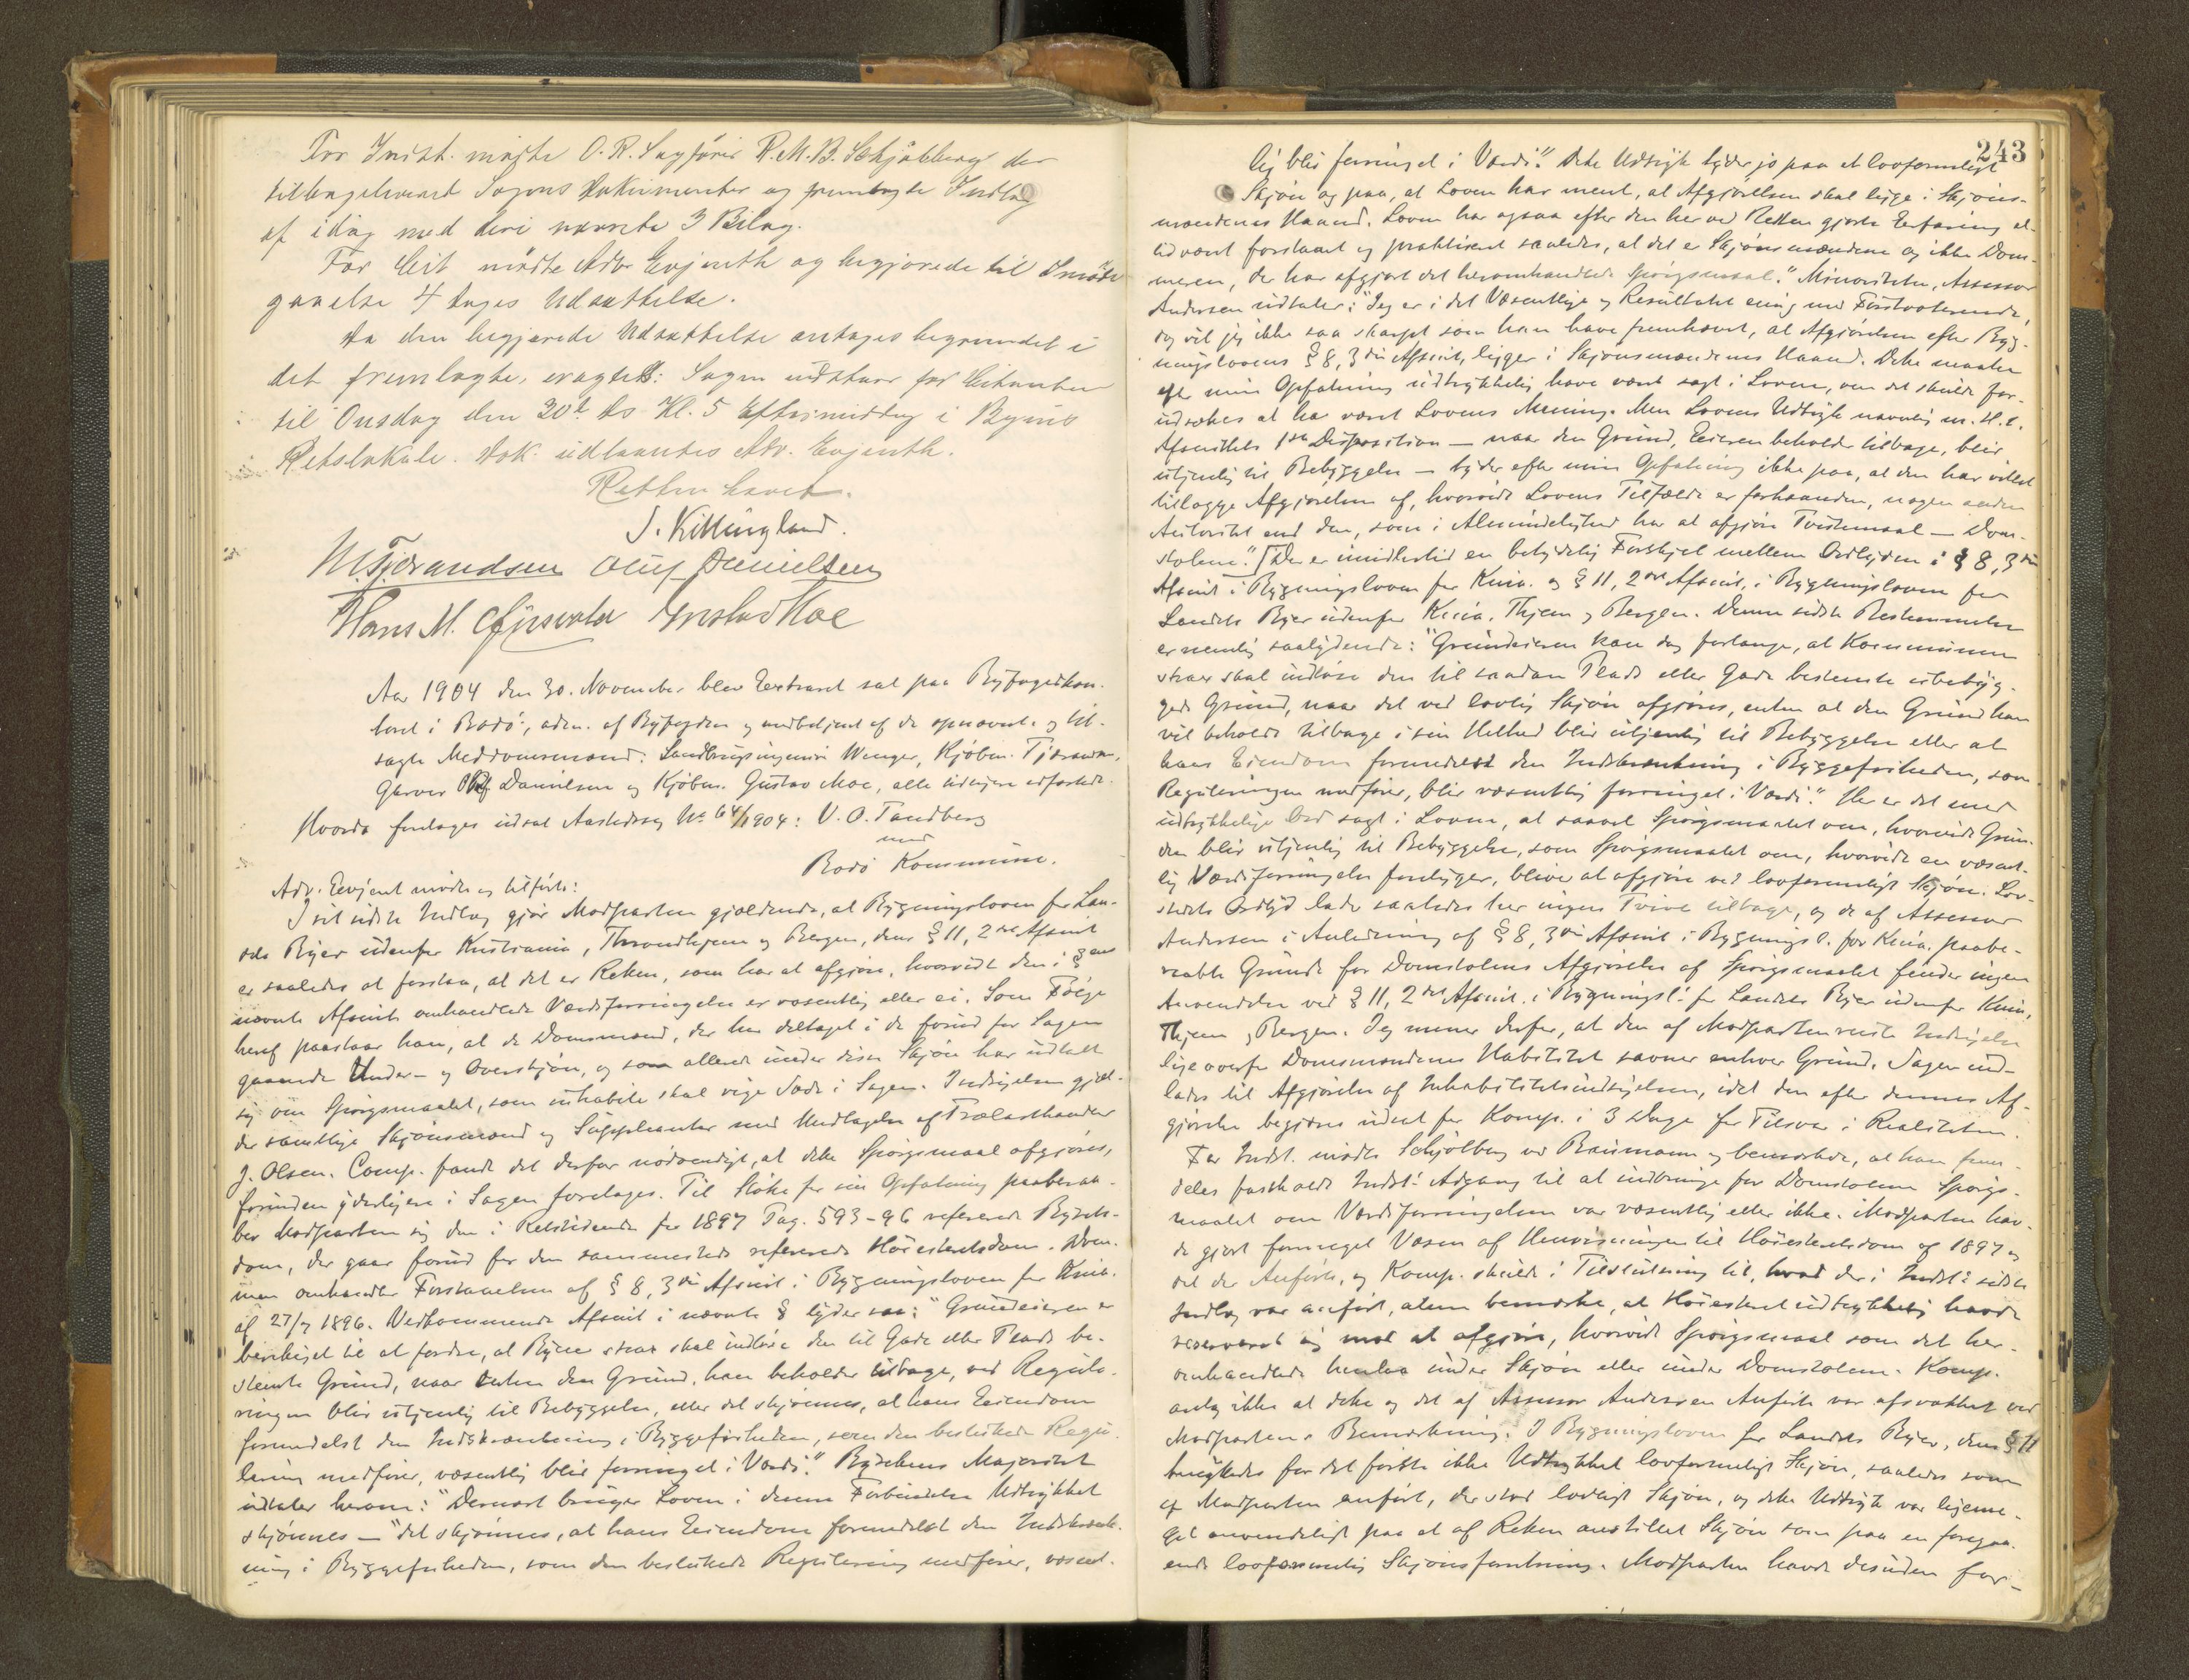 For Indst. mødte O.R. Sagfører R.M.B. Schjølberg der
tilbageleverede Sagens Dokumenter og fremlagte Indlæg
af idag med deri nævnte 3 Bilag.
For Cit. mødte Adv Evjenth og begjærede til Imøde
gaaelse 4 Dages Udsættelse.
Da den begjærede Udsættelse antages begrundet i
det fremlagte, eragtes: Sagen udstaar for Citanten
til Onsdag den 30te ds Kl. 5 Eftermiddag i Byens
Retslokale. Dok. udlaantes Adv. Evjenth.
Retten hævet.
J. Killingland.
M. Tjærandsen Oluf Danielsen
Hans M. Gustav Moe
Aar 1904 den 30. November blev Extraret sat paa Byfogedkon-
toret i Bodø, adm. af Byfogden og medbetjent af de opnævnte og til-
sagte Meddomsmænd: Landbrugsingeniør Wenger, Kjøbm. Tjærandsen,
Garver Oluf Danielsen og Kjøbm. Gustav Moe, alle tidligere edfæstede.
Hvorda foretages udsat Aastedssag No 64/1904: V. O. Tandberg
mod
Bodø Kommune.
Adv. Evjent mødte og tilførte:
I sit sidste Indlæg gjør Modparten gjældende, at Bygningsloven for Lan-
dets Byer udenfor Kristiania, Throndhjem og Bergen, dens § 11, 2det Afsnit
er saaledes at forstaa, at det er Retten, som har at afgjøre, hvorvidt den i § en
nævnte Afsnit omhandlede Værdiforringelse er væsentlig eller ei. Som Følge
heraf paastaar han, at de Domsmænd, der har deltaget i de forud for Sagen
gaaende Under- og Overskjøn, og som allerede under disse Skjøn har udtalt
sig om Spørgsmaalet, som inhabile skal vige Sæde i Sagen. Indsigelsen gjæl-
der samtlige Skjønsmænd og Suppleanter med Undtagelse af Trælasthandler
J. Olsen. Comp. fandt det derfor nødvendigt, at dette Spørgsmaal afgjøres,
forinden yderligere i Sagen foretages. Til Støtte for sin Opfatning paaberaa-
ber Modparten sig den i Retstidende for 1897 Pag. 593-96 refererede Byrets-
dom, der gaar forud for den sammesteds refererede Høiesteretsdom. Dom-
men omhandler Forstaaelsen af § 8, 3die Afsnit i Bygningsloven for Kria.
af 27/7 1896. Vedkommende Afsnit i nævnte § lyder saa: "Grundeieren er
berettiget til at fordre, at Byen strax skal indløse den til Gade eller Plads be-
stemte Grund, naar enten den Grund, han beholder tilbage, ved Regule-
ringen blir utjenlig til Bebyggelse, eller det skjønnes, at hans Eiendom
formedelst den Indskrænkning i Byggefriheden, som den besluttede Regu-
lering medfører, væsentlig blir forringet i Værdi." Byrettens Majoritet
udtaler herom: "Dernæst bruger Loven i denne Forbindelse Udtrykket
skjønnes — "det skjønnes, at hans Eiendom formedelst den Indskrænk-
ning i Byggefriheden, som den besluttede Regulering medfører, væsent-
243
lig blir forringet i Værdi." Dette Udtryk tyder jo paa et lovformeligt
Skjøn og paa, at Loven har ment, at Afgjørelsen skal ligge i Skjøns-
mændenes Haand. Loven har ogsaa efter den her ved Retten gjorte Erfaring al-
tid været forstaaet og praktiseret saaledes, at det er Skjønsmændene og ikke Dom-
meren, der har afgjort det heromhandlede Spørgsmaal." Minoriteten, Assessor
Andersen udtaler: "Jeg er i det Væsentlige og Resultatet enig med Førstvoterende,
dog vil jeg ikke saa skarpt som han have fremhævet, at Afgjørelsen efter Byg-
ningslovens § 8, 3die Afsnit, ligger i Skjønsmændenes Haand. Dette maatte
efter min Opfatning udtrykkelig have været sagt i Loven, om det skulde for-
udsættes at ha været Lovens Mening. Men Lovens Udtryk navnlig m. H. t.
Afsnittets 1ste Disposition — naar den Grund, Eieren beholder tilbage, blir
utjenlig til Bebyggelse — tyder efter min Opfatning ikke paa, at den har villet
tillægge Afgjørelsen af, hvorvidt Lovens Tilfælde er forhaanden, nogen anden
Autoritet end den, som i Almindelighed har at afgjøre Tvistemaal — Dom-
stolene." [Der er imidlertid en betydelig Forskjel mellem Ordlyden i § 8, 3die
Afsnit i Bygningsloven for Kria. og § 11, 2det Afsnit, i Bygningsloven for
Landets Byer udenfor Kria. Thjem og Bergen. Denne sidste Bestemmelse
er nemlig saalydende: "Grundeieren kan dog forlange, at Kommunen
strax skal indløse den til saadan Plads eller Gade bestemte ubebyg-
gede Grund, naar det ved lovlig Skjøn afgjøres, enten at den Grund han
vil beholde tilbage i sin Helhed blir utjenlig til Bebyggelse eller at
hans Eiendom formedelst den Indskrænkning i Byggefriheden, som
Reguleringen medfører, blir væsentlig forringet i Værdi." Her er det med
udtrykkelige Ord sagt i Loven, at saavel Spørgsmaalet om, hvorvidt Grun-
den blir utjenlig til Bebyggelse, som Spørgsmaalet om, hvorvidt en væsent-
lig Værdiforringelse foreligger, bliver at afgjøre ved lovformeligt Skjøn. Lov-
stedets Ordlyd lader saaledes her ingen Tvivl tilbage, og de af Assessor
Andersen i Anledning af § 8, 3die Afsnit i Bygningsl. for Kria. paabe-
raabte Grunde for Domstolens Afgjørelse af Spørgsmaalet finder ingen
Anvendelse ved § 11, 2det Afsnit. i Bygningsl. for Landets Byer udenfor Kria,
Thjem, Bergen. Jeg mener derfor, at den af Modparten reiste Indsigelse
ligeoverfor Domsmændenes Habilitet savner enhver Grund. Sagen ind-
lades til Afgjørelse af Inhabilitetsindsigelsen, idet den efter dennes Af-
gjørelse begjæres udsat for Komp. i 3 Dage for Tilsvar i Realiteten.
For Indst. mødte Schjølberg ved Baumann og bemærkede, at han frem-
deles fastholdt Indst.s Adgang til at indbringe for Domstolene Spørgs-
maalet om Værdiforringelsen var væsentlig eller ikke. Modparten hav-
de gjort formeget Væsen af Henvisningen til Høiesteretsdom af 1897 og
det der Anførte, og Komp. skulde i Tilslutning til, hvad der i Indst.s sidste
Indlæg var anført, alene bemærke, at Høiesteret udtrykkelig havde
reserveret sig mod at afgjøre, hvorvidt Spørgsmaal som det her-
omhandlede henlaa under Skjøn eller under Domstolene. Komp.
antog ikke at dette og det af Assessor Andersen Anførte var afsvækket ved
Modpartens Bemærkning. I Bygningsloven for Landets Byer, dens § 11
brugtes for det første ikke Udtrykket lovformeligt Skjøn, saaledes som
af Modparten anført, der stod lovligt Skjøn, og dette Udtryk var ligeme-
get anvendeligt paa et af Retten anstillet Skjøn som paa en foregaa-
ende lovformelig Skjønsforretning. Modparten havde desuden for-